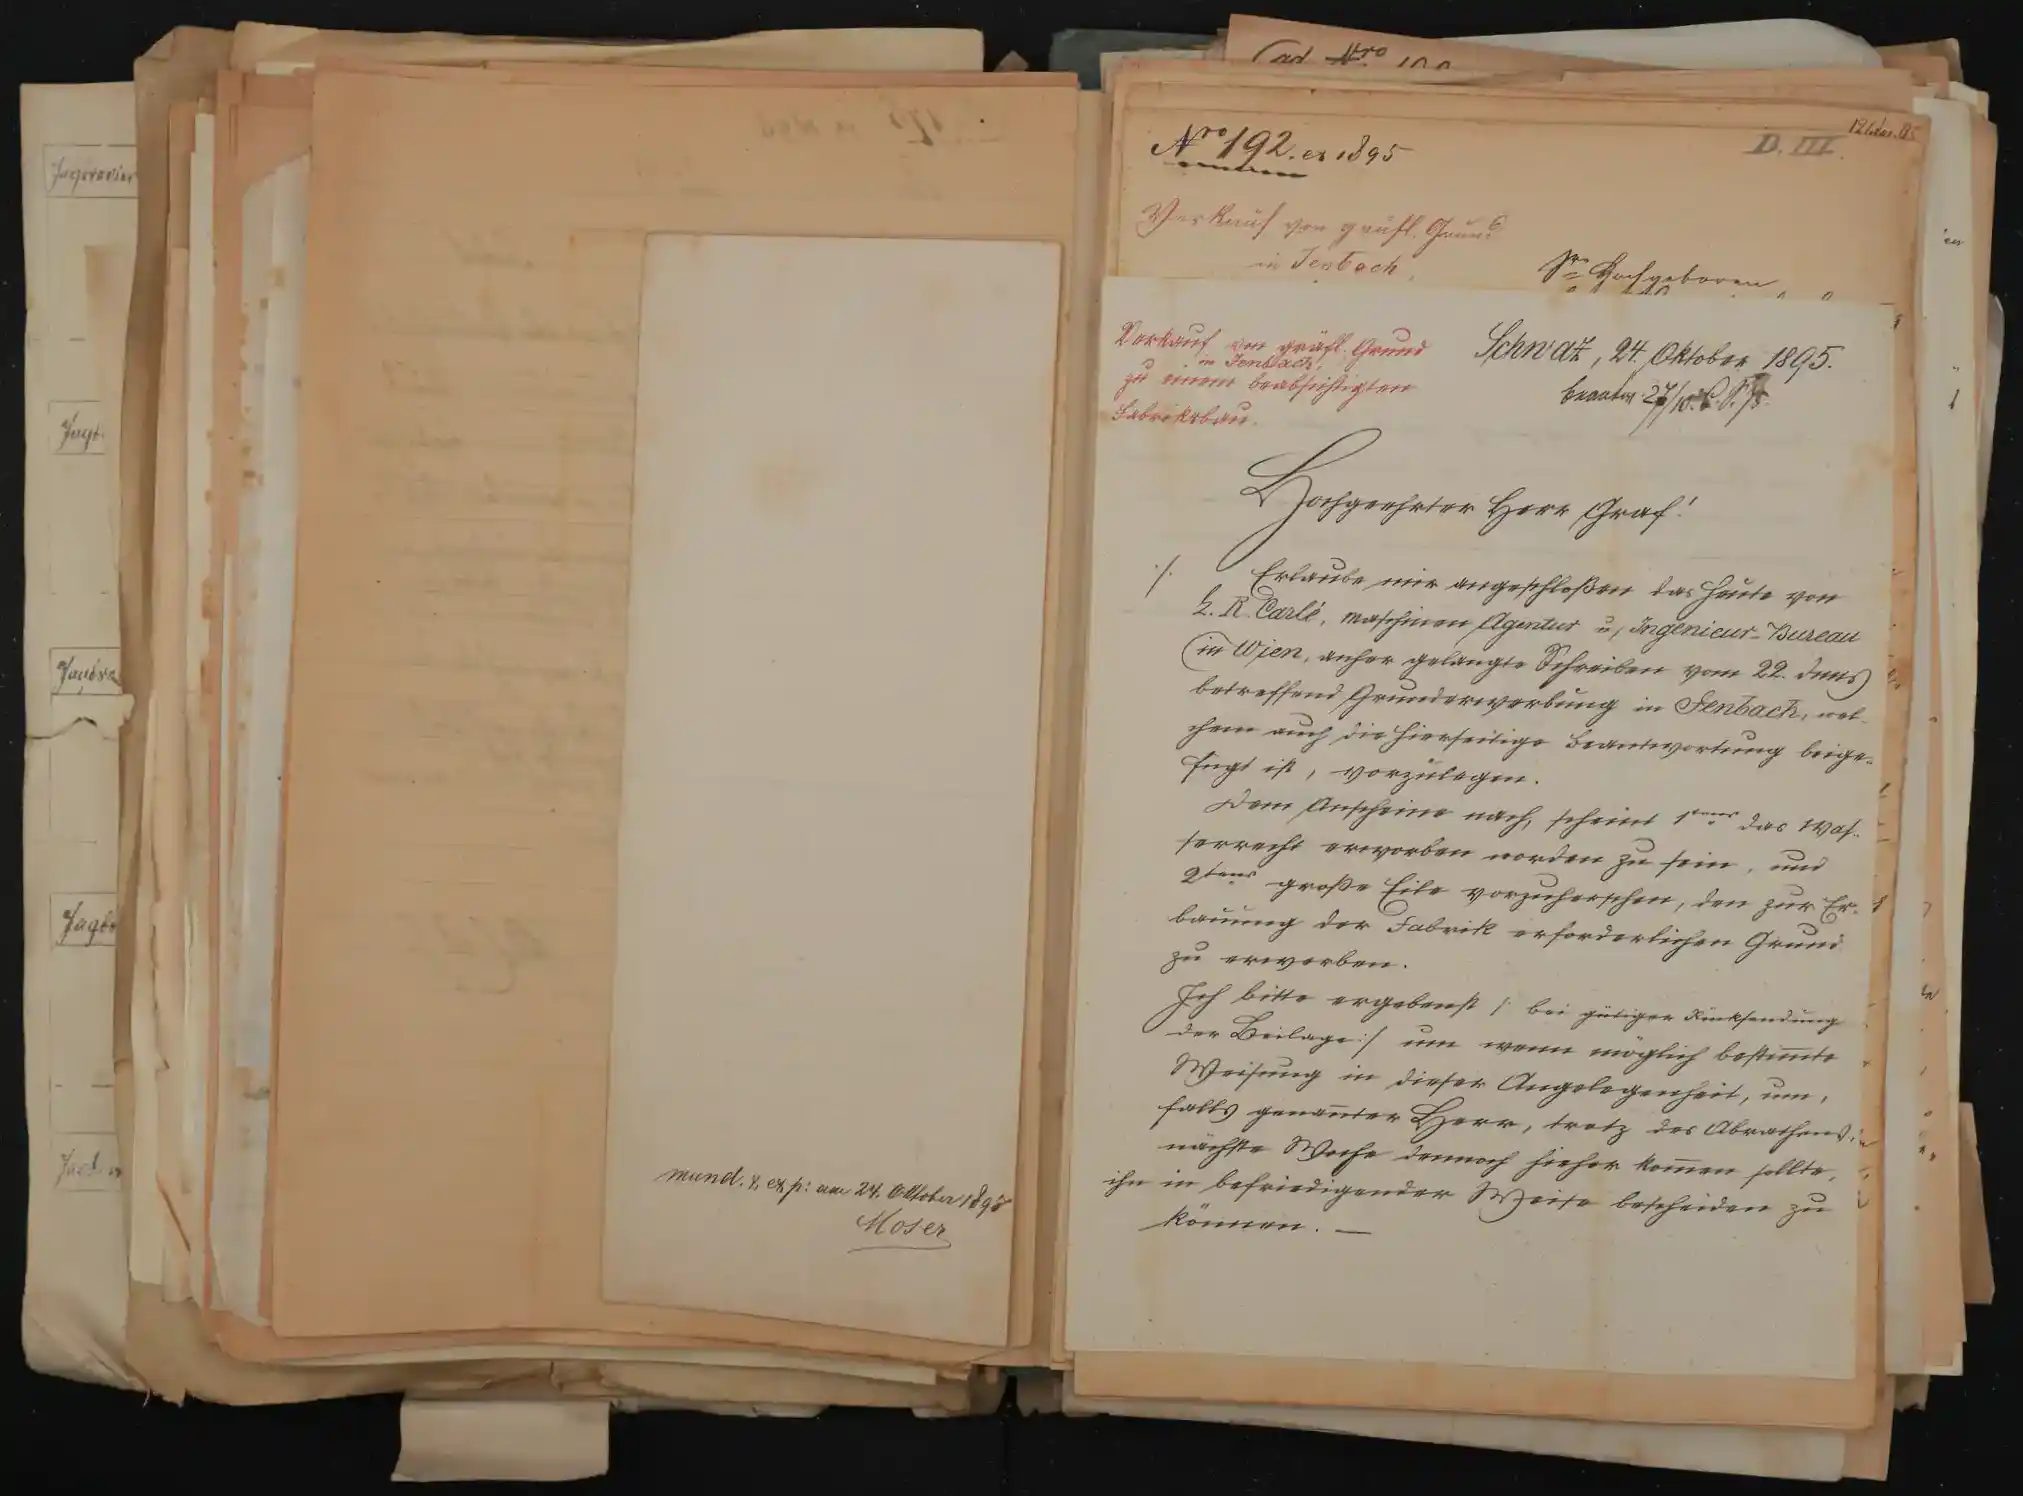 Jagdrevier
Jagd
mund. & exp: am 24. Oktober 1895
Moser
Ad Nro 192
Nro 192. ex 1895
D. III.
Verkauf von gräfl. Grund
in Jenbach.
Sr Hochgeboren
Verkauf von gräfl. Grund
in Jenbach,
zu einem beabsichtigten
Fabriksbau.
Schwaz, 24. Oktober 1895.
beantw. 27/10.
Hochgeehrter Herr Graf!
./. Erlaube mir angeschloßen das heute von
R. Carlé, Maschinen Agentur u, Ingenieur-Bureau
in Wien, anher gelangte Schreiben vom 22. dms
betreffend Grunderwerbung in Jenbach, wel-
chem auch die hierseitige Beantwortung beige-
fügt ist, vorzulegen.
Dem Anscheine nach, scheint 1tens das Was-
serrecht erworben worden zu sein, und
2tens große Eile vorzuherschen, den zur Er-
bauung der Fabrik erforderlichen Grund
zu erwerben.
Ich bitte ergebenst /: bei gütiger Rücksendung
der Beilage :/ um wenn möglich bestimmte
Weisung in dieser Angelegenheit, um,
falls genannter Herr, trotz des Abrathens
nächste Woche dennoch hieher kommen sollte,
ihn in befriedigender Weise bescheiden zu
können. —